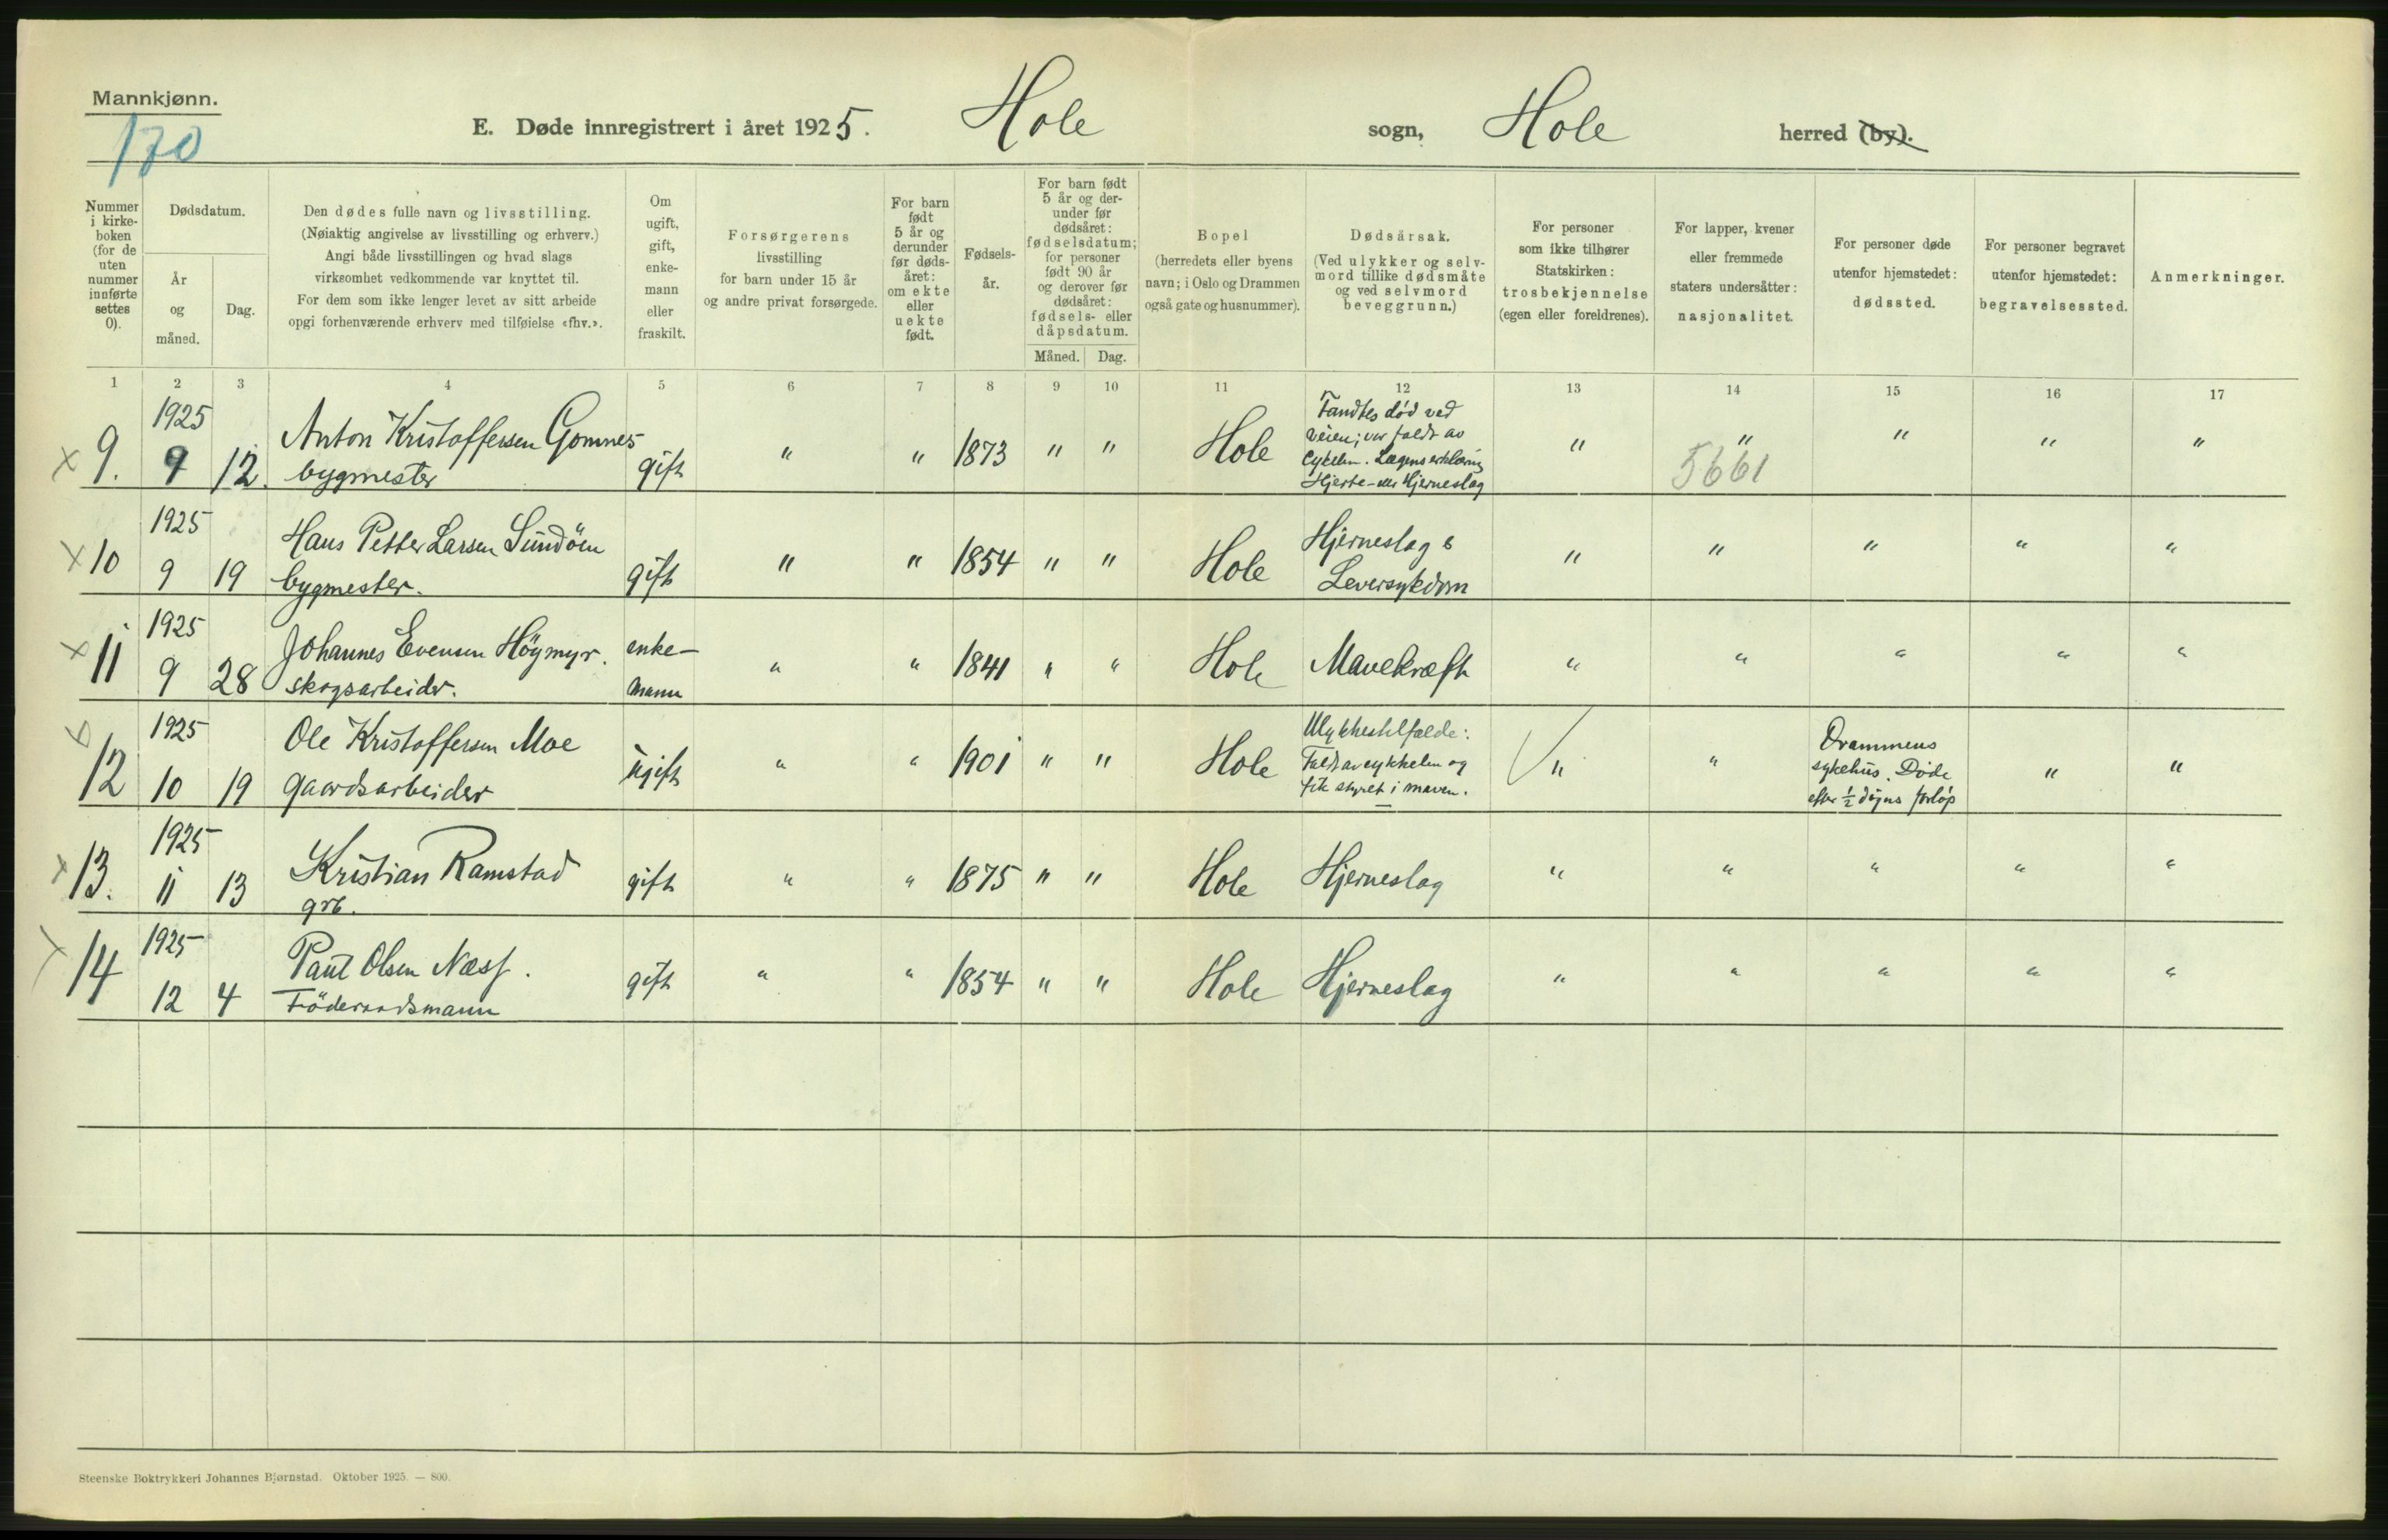 Mannkjønn.
170
E. Døde innregistrert i året 1925. Hole sogn, Hole herred (by).
Nummer i kirke-boken (for de uten nummer innførte settes 0).
Dødsdatum.
År og måned.
Dag.
Den dødes fulle navn og livsstilling.
(Nøiaktig angivelse av livsstilling og erhverv.)
Angi både livsstillingen og hvad slags
virksomhet vedkommende var knyttet til.
For dem som ikke lenger levet av sitt arbeide
opgi forhenværende erhverv med tilføielse «fhv.».
Om ugift, gift, enke-mann eller fraskilt.
Forsørgerens
livsstilling
for barn under 15 år
og andre privat forsørgede.
For barn født 5 år og derunder før døds-året: om ekte eller uekte født.
Fødsels-år.
For barn født 5 år og der-under før dødsåret: fødselsdatum; for personer født 90 år og derover før dødsåret: fødsels- eller dåpsdatum.
Måned. Dag.
Bopel
(herredets eller byens
navn; i Oslo og Drammen
også gate og husnummer).
Dødsårsak.
(Ved ulykker og selv-
mord tillike dødsmåte
og ved selvmord
beveggrunn.)
For personer
som ikke tilhører
Statskirken:
trosbekjennelse
(egen eller foreldrenes).
For lapper, kvener
eller fremmede
staters undersåtter:
nasjonalitet.
For personer døde
utenfor hjemstedet:
dødssted.
For personer begravet
utenfor hjemstedet:
begravelsessted.
Anmerkninger.
1 2 3 4 5 6 7 8 9 10 11 12 13 14 15 16 17
x 9. 1925 9 12. Anton Kristoffersen Gomnes
bygmester gift " " 1873 " " Hole
Fandtes død ved
veien; var faldt av
Cykelen. Lægens erklæring
Hjerte- eller Hjerneslag
" " " " "
5661
x 10 1925 9 19 Hans Petter Larsen Sundöen
bygmester. gift " " 1854 " " Hole
Hjerneslag &
Leversykdom
" " " " "
x 11 1925 9 28 Johannes Evensen Höymyr.
skogsarbeider. enke-
mann " " 1841 " " Hole Mavekræft " " " " "
12 1925 10 19 Ole Kristoffersen Moe
gaardsarbeider ugift " " 1901 " " Hole
Ulykkestilfælde:
Faldt av cykkelen og
fik styret i maven.
" "
Drammens
sykehus. Døde
efter ½ døgns forløp
" "
x 13. 1925 11 13 Kristian Ramstad
grb. gift " " 1875 " " Hole Hjerneslag " " " " "
14 1925 12 4 Paul Olsen Næss.
Föderaadsmann gift " " 1854 " " Hole Hjerneslag " " " " "
Steenske Boktrykkeri Johannes Bjørnstad. Oktober 1925. — 800.